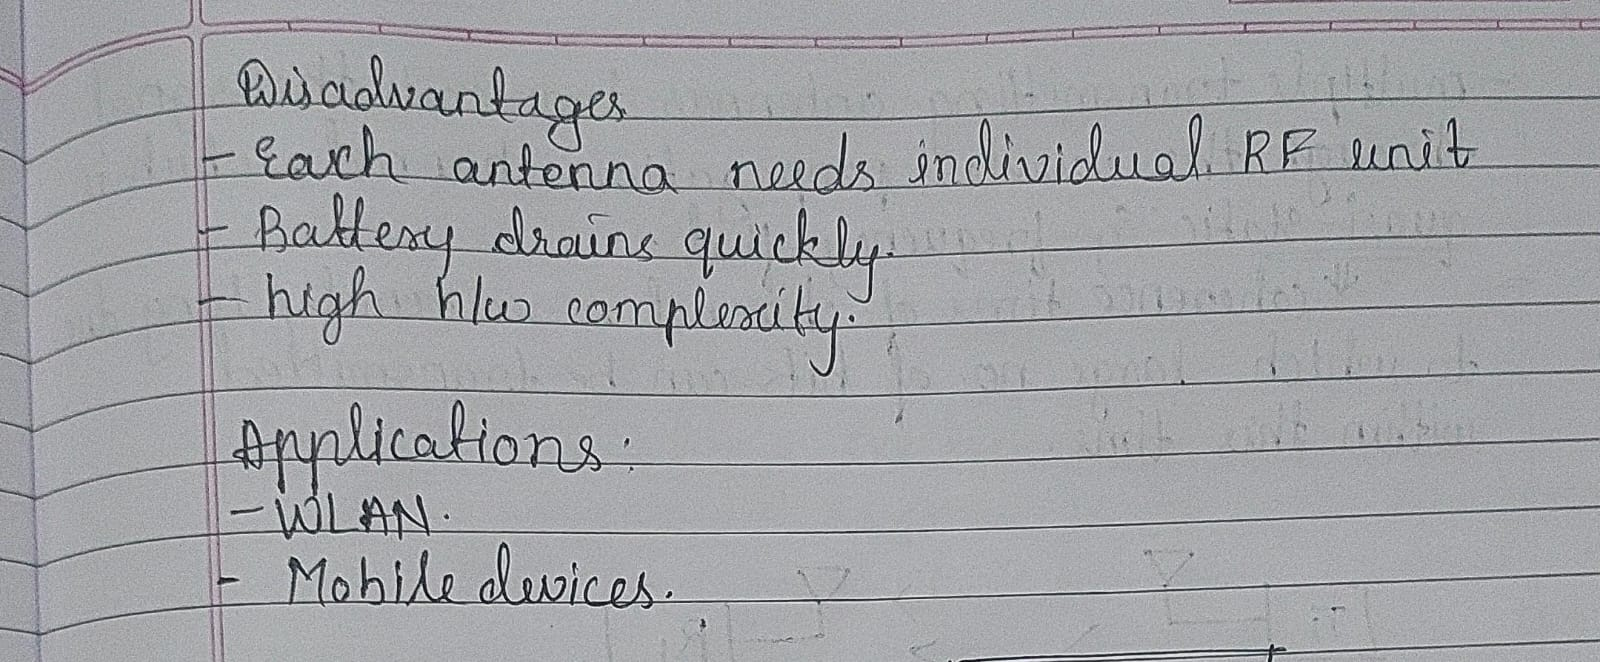 Disadvantages
- Each antenna needs individual RF unit
- Battery drains quickly.
- high h/w complexity.
Applications:
- WLAN.
- Mobile devices.